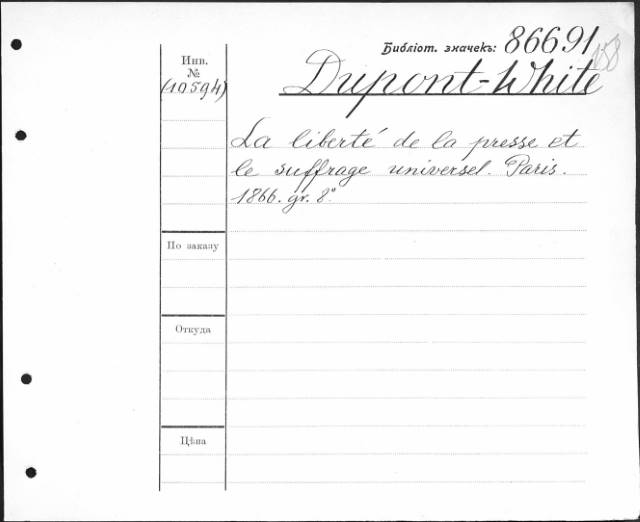 Библіот. значекъ: 86691
158
Инв.
№
(10594)
Dupont-White
La liberté de la presse et
le suffrage universel. Paris.
1866. gr. 8°
По заказу
Откуда
Цѣна